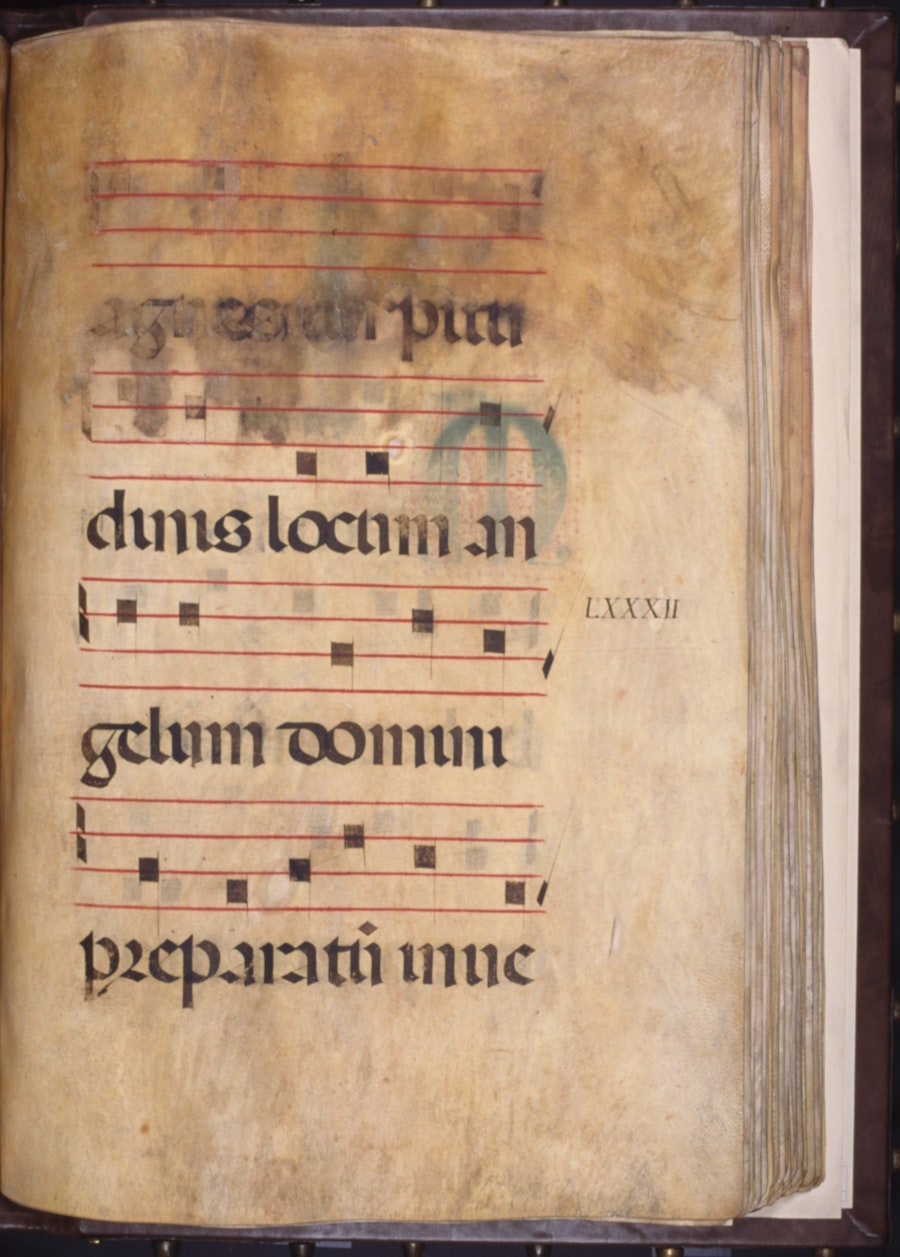 agnes tur pitu
dinis locum an
LXXXII
gelum domini
preparatū inue